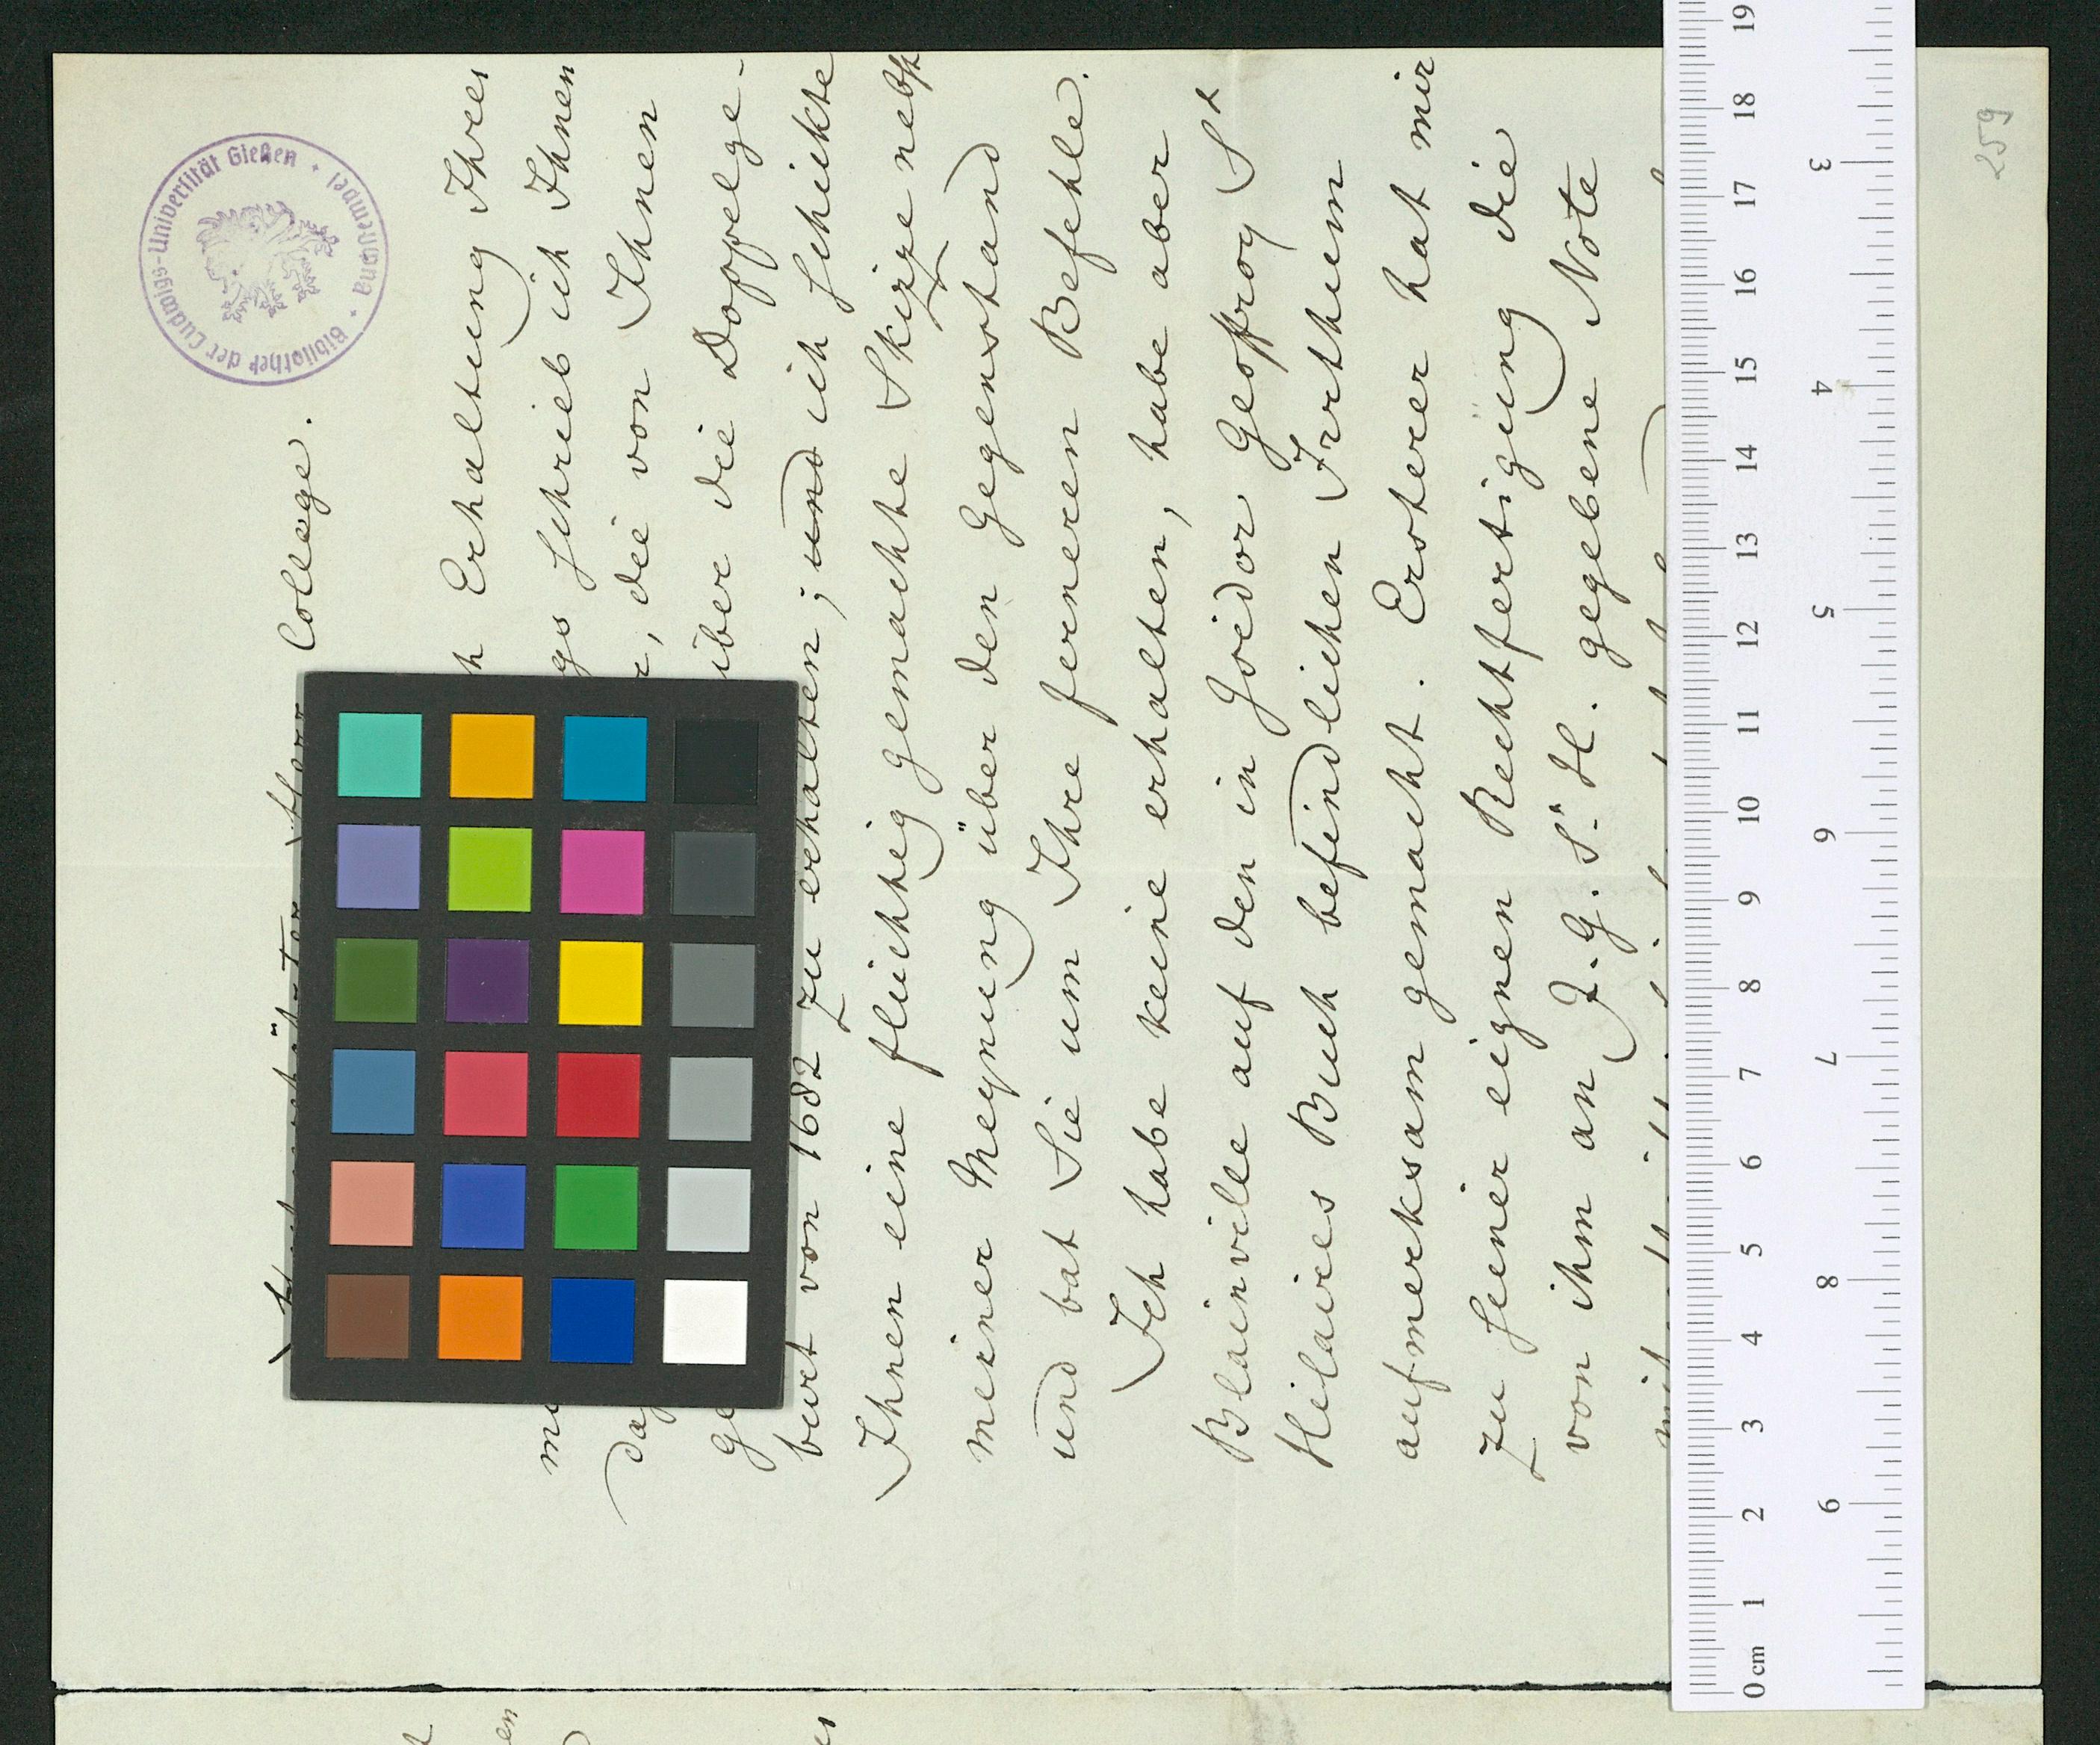 College.
Erhaltung Ihres
schrieb ich Ihnen
die von Ihnen
über die Doppelge-
burt von 1682 zu erhalten; und ich schickte
Ihnen eine flüchtig gemachte Skizze nebst
meiner Meynung über den Gegenstand
und bat Sie um Ihre ferneren Befehle.
Ich habe keine erhalten, habe aber
Blainville auf den in Isidor Geoffroy St
Hilaires Buch befindlichen Irrthum
aufmerksam gemacht. Ersterer hat mir
zu seiner eignen Rechtfertigung die
von ihm an J. G. St. H. gegebene Note
Bibliothek der Ludwigs-Universität Gießen
259
0 cm 1 2 3 4 5 6 7 8 9 10 11 12 13 14 15 16 17 18 19
3 4 5 6 7 8 9